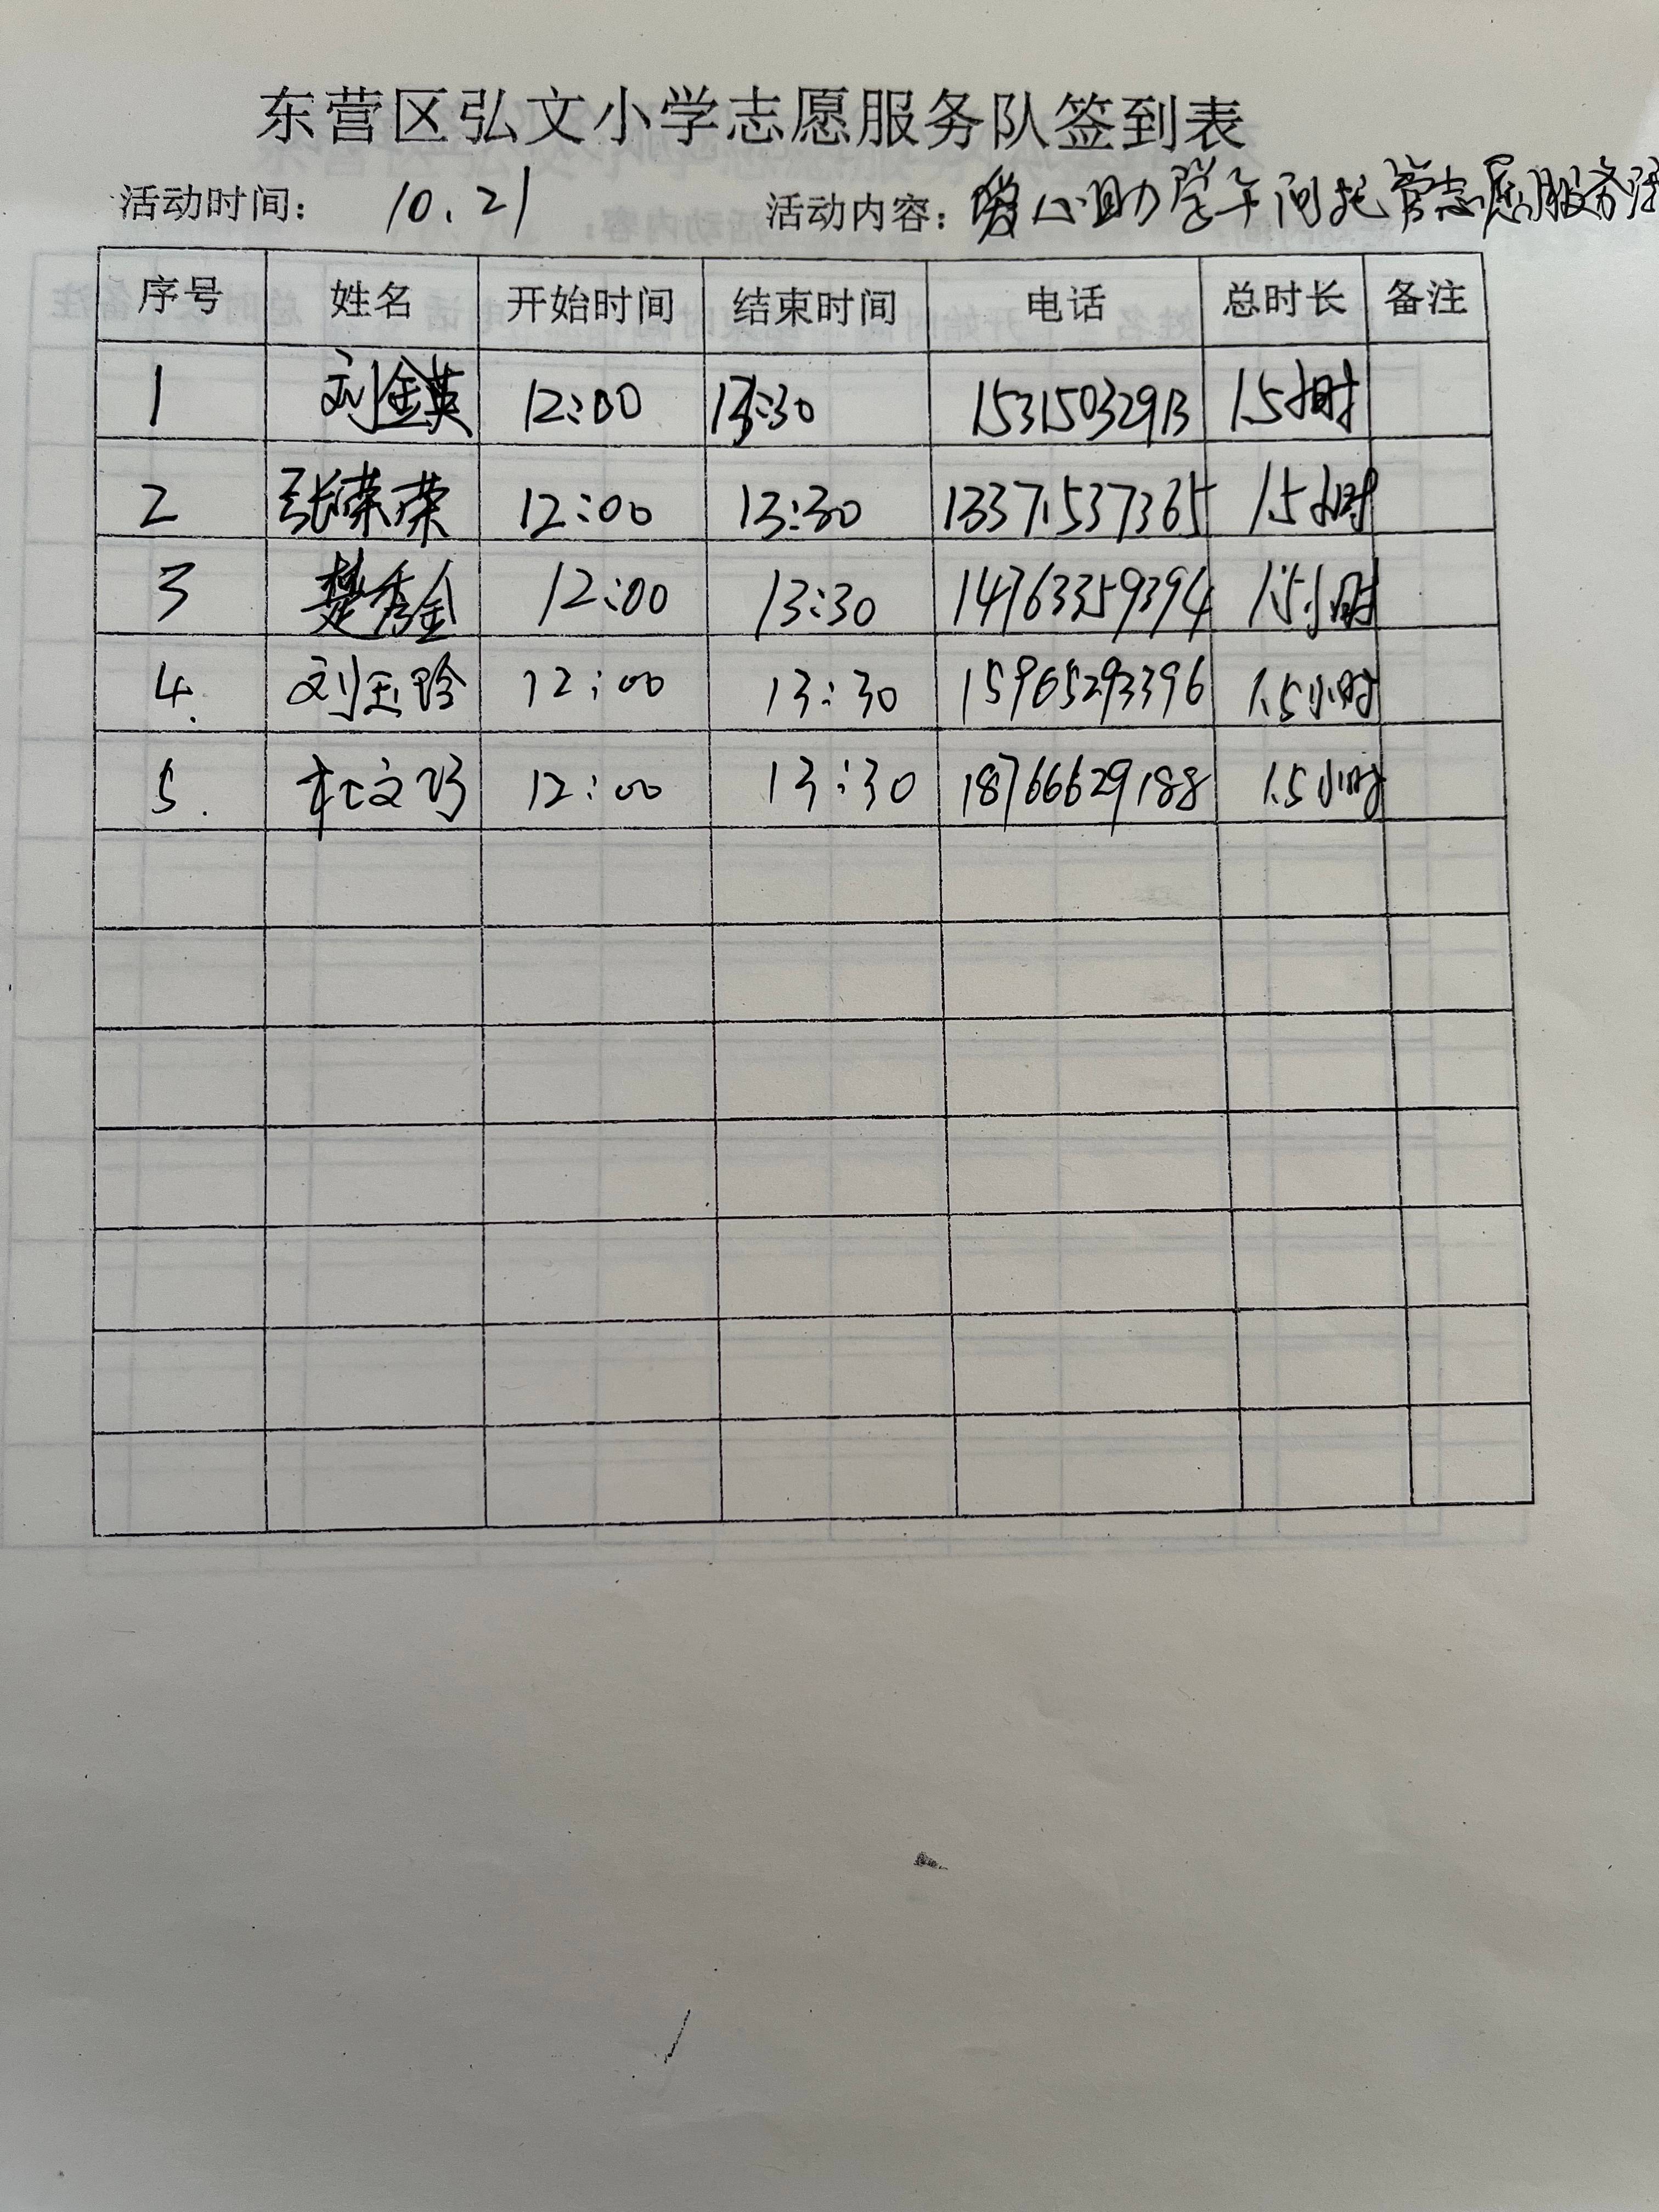 东营区弘文小学志愿服务队签到表
活动时间： 10.21 活动内容：爱心助学午间托管志愿服务活
序号 姓名 开始时间 结束时间 电话 总时长 备注
1 刘金英 12:00 13:30 15315032913 1.5小时
2 张荣荣 12:00 13:30 13371537365 1.5小时
3 楚秀金 12:00 13:30 14763359394 1.5小时
4. 刘玉玲 12:00 13:30 15965293396 1.5小时
5. 杜文巧 12:00 13:30 18766629188 1.5小时